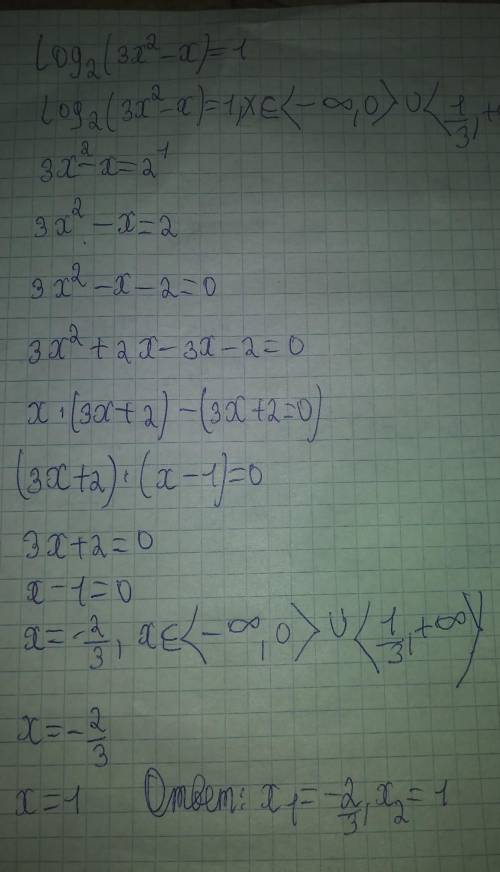 log₂(3x²-x)=1
log₂(3x²-x)=1,x∈⟨-∞,0⟩∪⟨1/3,+
3x²-x=2¹
3x²-x=2
3x²-x-2=0
3x²+2x-3x-2=0
x·(3x+2)-(3x+2=0)
(3x+2)·(x-1)=0
3x+2=0
x-1=0
x=-2/3, x∈⟨-∞,0⟩∪⟨1/3,+∞⟩
x=-2/3
x=1 Ответ: x₁=-2/3, x₂=1